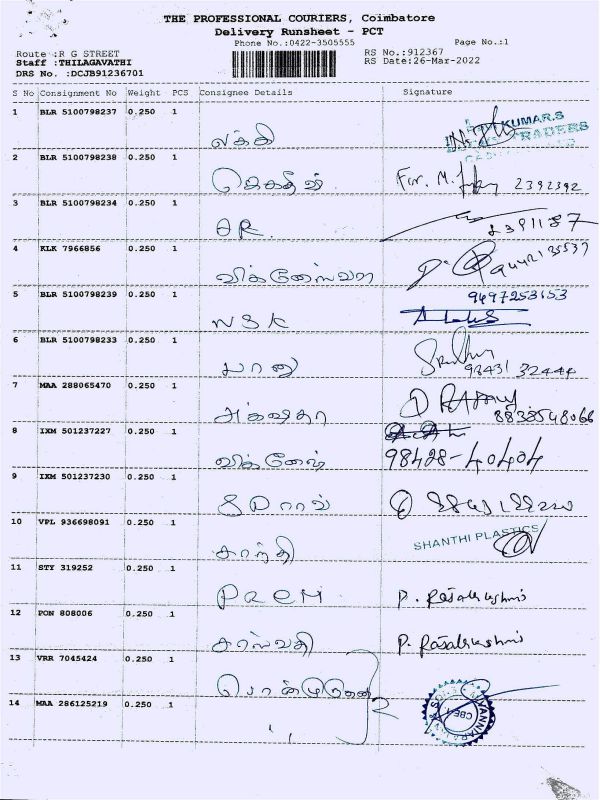 THE PROFESSIONAL COURIERS, Coimbatore
Delivery Runsheet - PCT
Phone No.:0422-3505555 Page No.:1
Route :R G STREET RS No.:912367
Staff :THILAGAVATHI RS Date:26-Mar-2022
DRS No. :DCJB91236701
S No Consignment No Weight PCS Consignee Details Signature
1 BLR 5100798237 0.250 1
KUMAR.S
TRADERS
லக்கி
2 BLR 5100798238 0.250 1
For. M. 2392392
3 BLR 5100798234 0.250 1
OR.
4 KLK 7966856 0.250 1
விக்னேஸ்வரா
5 BLR 5100798239 0.250 1 9497253153
NSK
6 BLR 5100798233 0.250 1
பானு 98431 32444
7 MAA 288065470 0.250 1
அக்ஷதா 8838548066
8 IXM 501237227 0.250 1
விக்னேஷ் 98428-40404
9 IXM 501237230 0.250 1
10 VPL 936698091 0.250 1
சாந்தி SHANTHI PLASTICS
11 STY 319252 0.250 1
PREM P. Rajalakshmi
12 PON 808006 0.250 1
சரஸ்வதி P. Rajalakshmi
13 VRR 7045424 0.250 1
14 MAA 286125219 0.250 1
2